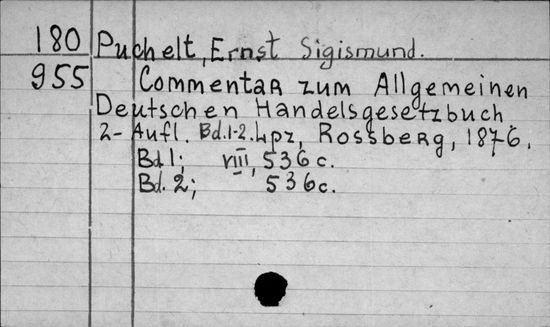 180 Puchelt, Ernst Sigismund.
955 Commentar zum Allgemeinen
Deutschen Handelsgesetzbuch.
2- Aufl. Bd.1-2. Lpz, Rossberg, 1876.
Bd 1; VIII, 536 c.
Bd. 2; 536 c.